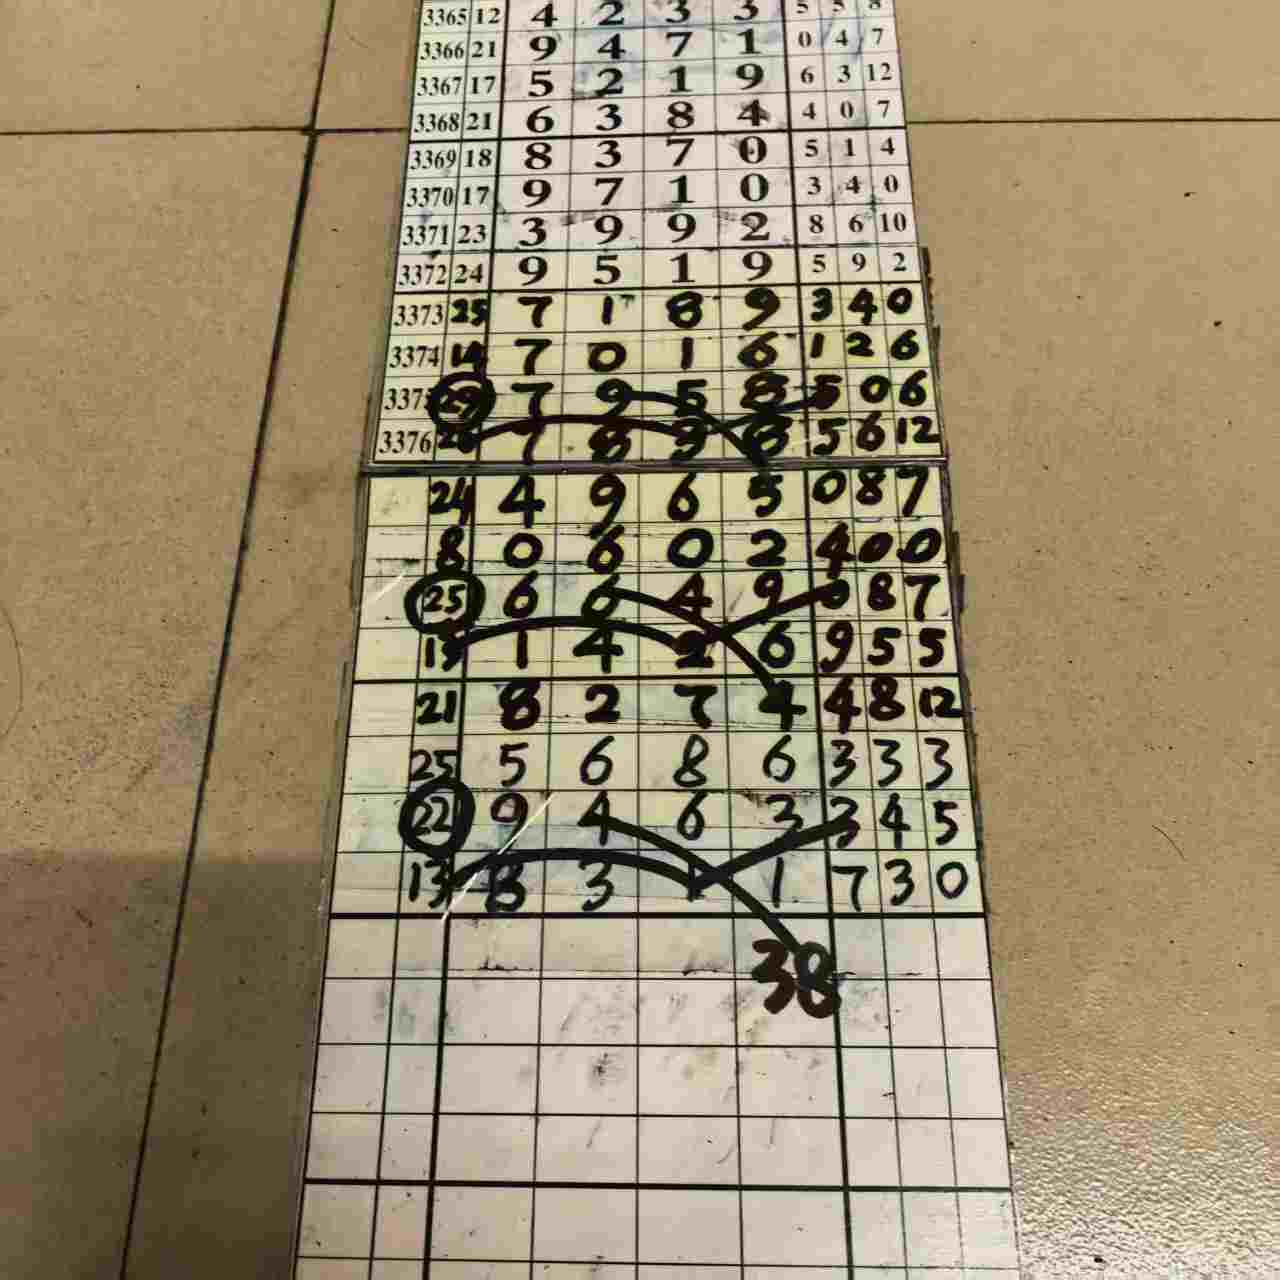 3365 12 4 2 3 3 5 5 8
3366 21 9 4 7 1 0 4 7
3367 17 5 2 1 9 6 3 12
3368 21 6 3 8 4 4 0 7
3369 18 8 3 7 0 5 1 4
3370 17 9 7 1 0 3 4 0
3371 23 3 9 9 2 8 6 10
3372 24 9 5 1 9 5 9 2
3373 25 7 1 8 9 3 4 0
3374 14 7 0 1 6 1 2 6
3375 29 7 9 5 8 5 0 6
3376 7 8 5 6 12
24 4 9 6 5 0 8 7
8 0 6 0 2 4 0 0
25 6 6 4 9 8 7
13 1 4 2 6 9 5 5
21 8 2 7 4 4 8 12
25 5 6 8 6 3 3 3
22 9 4 6 3 3 4 5
13 8 3 1 1 7 3 0
38